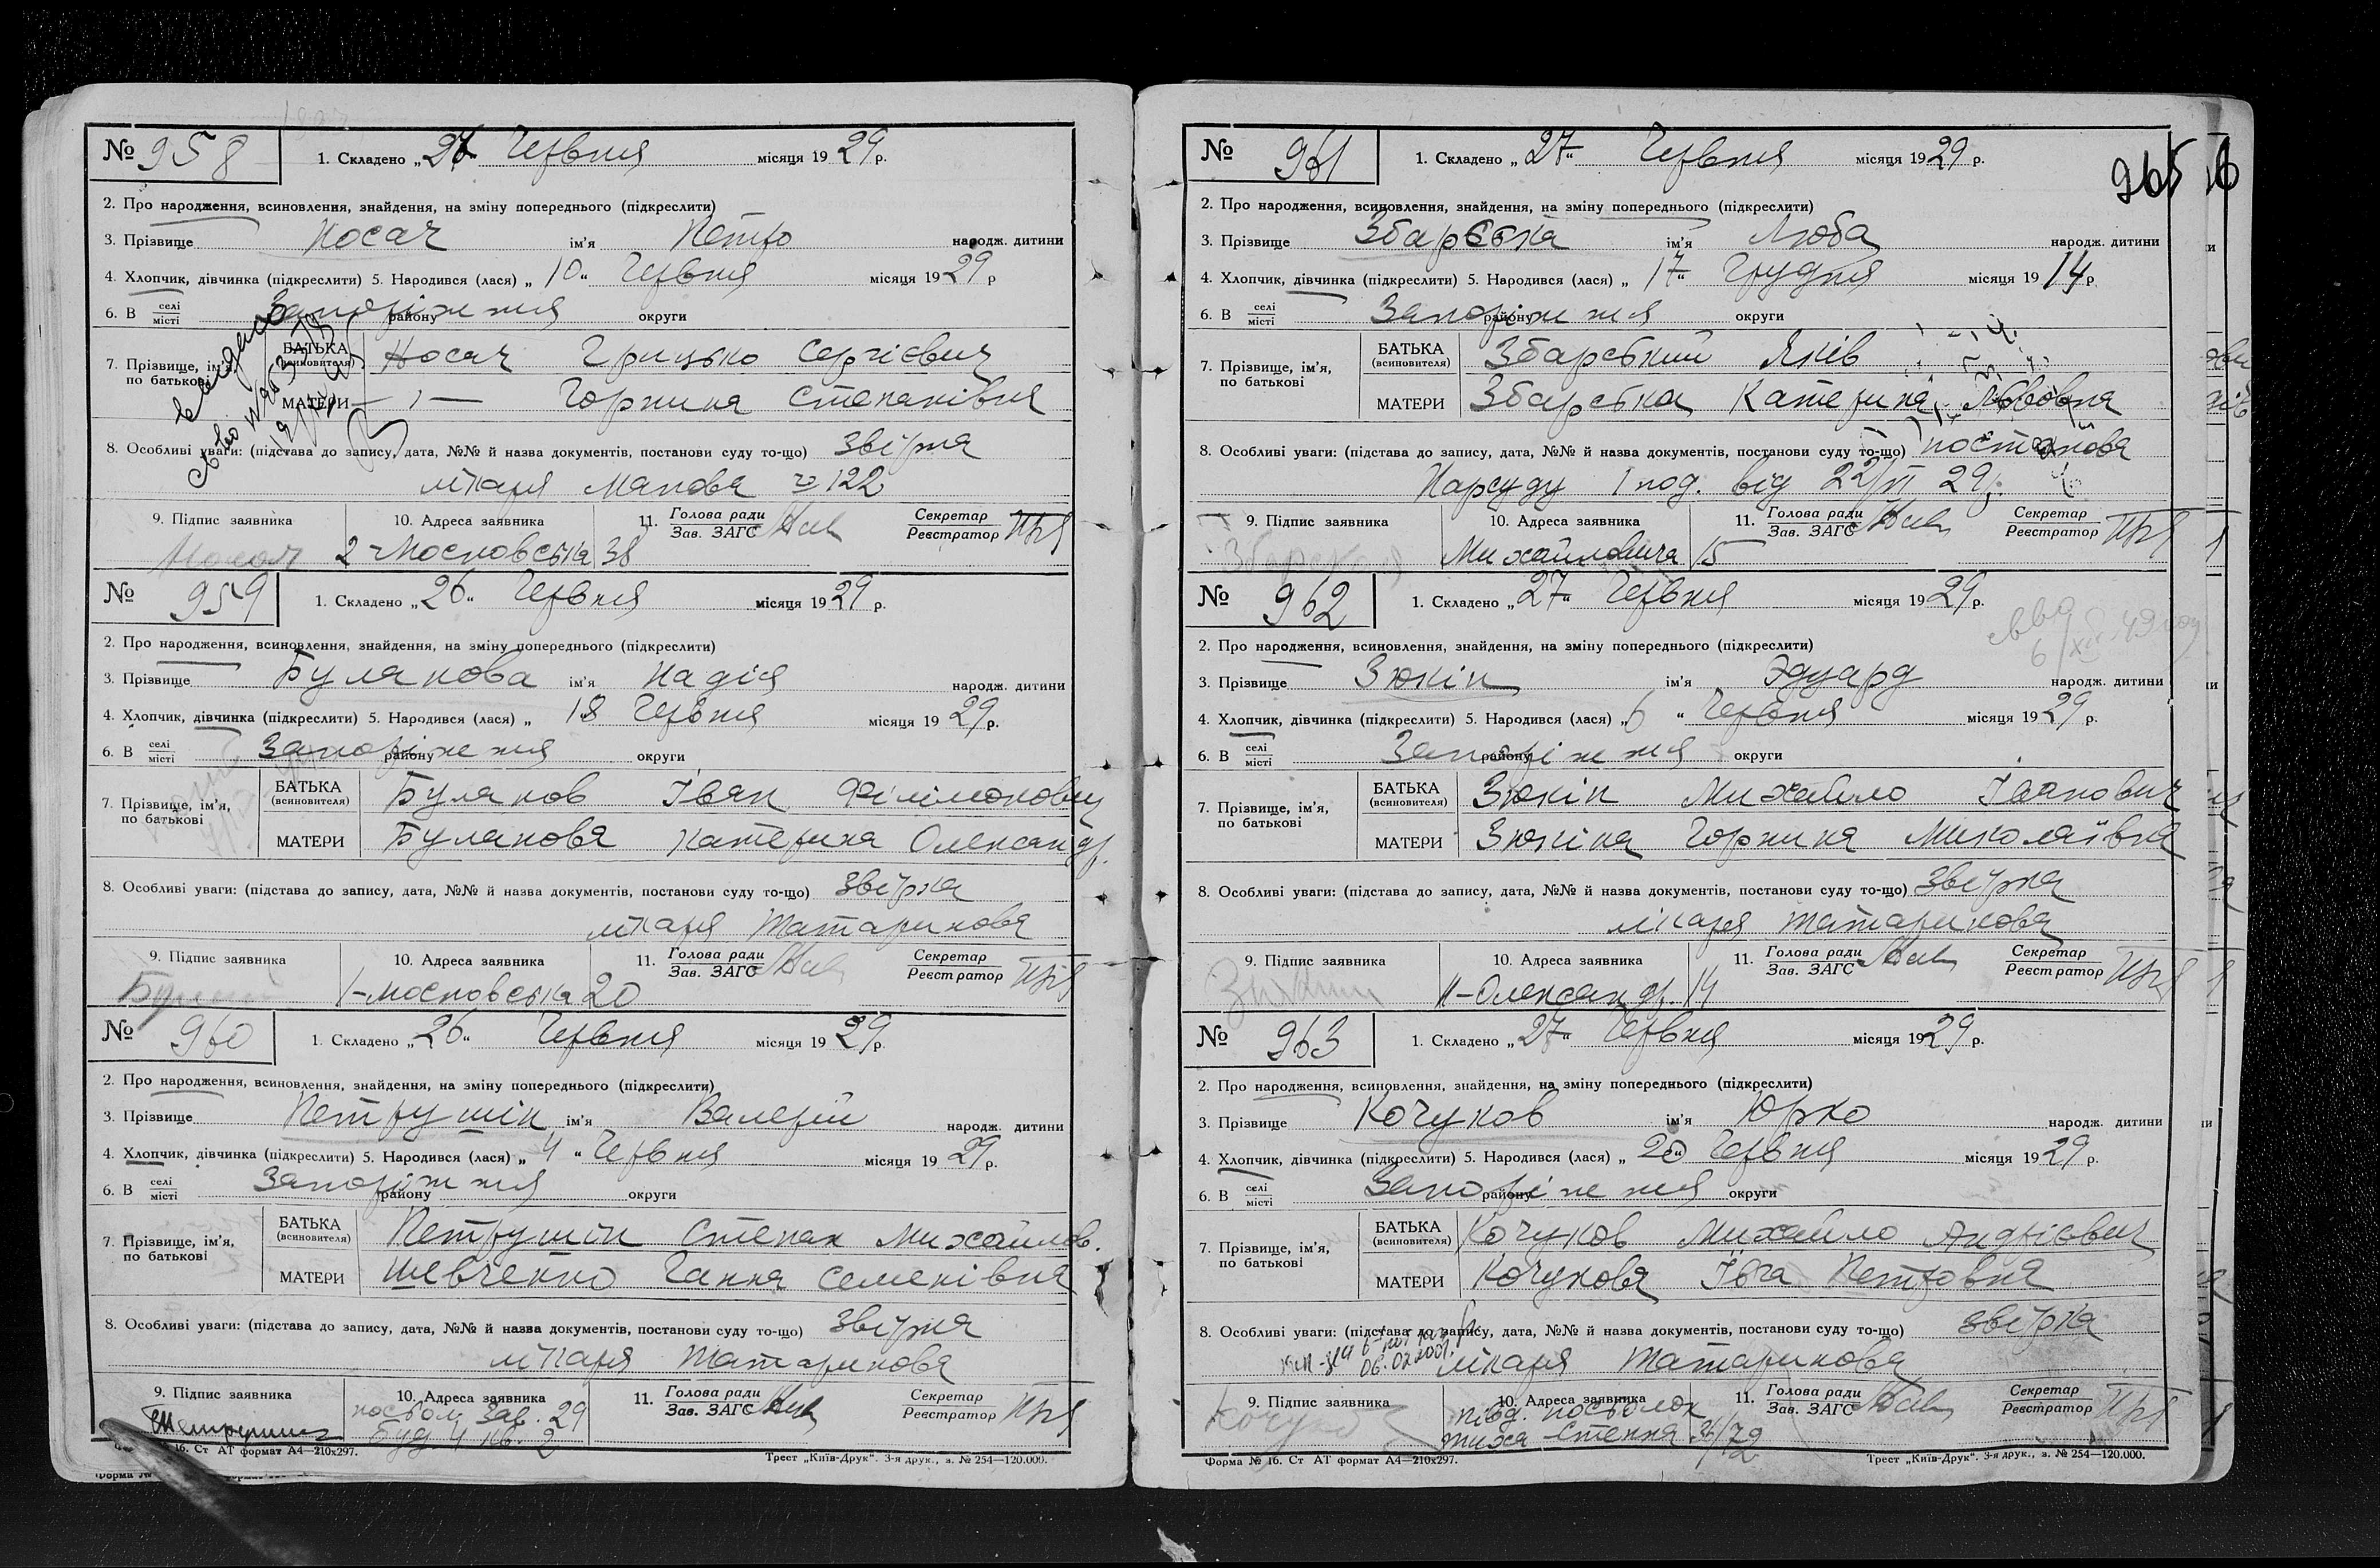 № 958 1. Складено „26“ Червня місяця 1929 р.
2. Про народження, всиновлення, знайдення, на зміну попереднього (підкреслити)
3. Прізвище Носач ім'я Петро народж. дитини
4. Хлопчик, дівчинка (підкреслити) 5. Народився (лася) „10“ Червня місяця 1929 р
6. В селі місті Запоріжжя району округи
7. Прізвище, ім'я, по батькові
БАТЬКА (всиновителя) Носач Грицько Сергієвич
МАТЕРИ —„— Горпина Степанівна
8. Особливі уваги: (підстава до запису, дата, №№ й назва документів, постанови суду то-що) Звірка
лікаря № 122
9. Підпис заявника 10. Адреса заявника 11. Голова ради Зав. ЗАГС Секретар Реєстратор
Носач 2 Московська 38
№ 959 1. Складено „26“ Червня місяця 1929 р.
2. Про народження, всиновлення, знайдення, на зміну попереднього (підкреслити)
3. Прізвище Булакова ім'я Надія народж. дитини
4. Хлопчик, дівчинка (підкреслити) 5. Народився (лася) „18 Червня місяця 1929 р.
6. В селі місті Запоріжжя району округи
7. Прізвище, ім'я, по батькові
БАТЬКА (всиновителя) Булаков Іван Філімонович
МАТЕРИ Булакова Катерина Олександр.
8. Особливі уваги: (підстава до запису, дата, №№ й назва документів, постанови суду то-що) Звірка
лікаря Татаринова
9. Підпис заявника 10. Адреса заявника 11. Голова ради Зав. ЗАГС Секретар Реєстратор
1-Московська 20
№ 960 1. Складено „26“ Червня місяця 1929 р.
2. Про народження, всиновлення, знайдення, на зміну попереднього (підкреслити)
3. Прізвище Петрушін ім'я Валерій народж. дитини
4. Хлопчик, дівчинка (підкреслити) 5. Народився (лася) „4“ Червня місяця 1929 р.
6. В селі місті Запоріжжя району округи
7. Прізвище, ім'я, по батькові
БАТЬКА (всиновителя) Петрушін Степан Михайлов.
МАТЕРИ Шевченко Ганна Семенівна
8. Особливі уваги: (підстава до запису, дата, №№ й назва документів, постанови суду то-що) Звірка
лікаря Татаринова
9. Підпис заявника 10. Адреса заявника 11. Голова ради Зав. ЗАГС Секретар Реєстратор
Зав. 29
Буд. 4 кв. 2
№ 16. Ст АТ формат А4—210х297. Трест „Київ-Друк“. 3-я друк., з. № 254—120.000.
№ 961 1. Складено „27“ Червня місяця 1929 р.
965
2. Про народження, всиновлення, знайдення, на зміну попереднього (підкреслити)
3. Прізвище Збарська ім'я Люба народж. дитини
4. Хлопчик, дівчинка (підкреслити) 5. Народився (лася) „17“ Грудня місяця 1914 р
6. В селі місті Запоріжжя району округи
7. Прізвище, ім'я, по батькові
БАТЬКА (всиновителя) Збарський Яків
МАТЕРИ Збарська Катерина Львовна
8. Особливі уваги: (підстава до запису, дата, №№ й назва документів, постанови суду то-що) постанова
Нарсуду 1 под. від 22/VI 29 р.
9. Підпис заявника 10. Адреса заявника 11. Голова ради Зав. ЗАГС Секретар Реєстратор
Збарская Михайловича 15
№ 962 1. Складено „27“ Червня місяця 1929 р.
2. Про народження, всиновлення, знайдення, на зміну попереднього (підкреслити)
3. Прізвище Зюкін ім'я Эдуард народж. дитини
4. Хлопчик, дівчинка (підкреслити) 5. Народився (лася) „6“ Червня місяця 1929 р.
6. В селі місті Запоріжжя району округи
7. Прізвище, ім'я, по батькові
БАТЬКА (всиновителя) Зюкін Михайло Іванович
МАТЕРИ Зюкіна Горпина Миколаївна
8. Особливі уваги: (підстава до запису, дата, №№ й назва документів, постанови суду то-що) Звірка
лікаря Татаринова
9. Підпис заявника 10. Адреса заявника 11. Голова ради Зав. ЗАГС Секретар Реєстратор
Н-Олександр. 14
№ 963 1. Складено „27“ Червня місяця 1929 р.
2. Про народження, всиновлення, знайдення, на зміну попереднього (підкреслити)
3. Прізвище Кочуков ім'я Юрко народж. дитини
4. Хлопчик, дівчинка (підкреслити) 5. Народився (лася) „20“ Червня місяця 1929 р.
6. В селі місті Запоріжжя району округи
7. Прізвище, ім'я, по батькові
БАТЬКА (всиновителя) Кочуков Михайло Андрієвич
МАТЕРИ Кочукова Івга Петровна
8. Особливі уваги: (підстава до запису, дата, №№ й назва документів, постанови суду то-що) Звірка
лікаря Татаринова
9. Підпис заявника 10. Адреса заявника 11. Голова ради Зав. ЗАГС Секретар Реєстратор
Півд. посьолок
Форма № 16. Ст АТ формат А4—210х297. Трест „Київ-Друк“. 3-я друк., з. № 254—120.000.